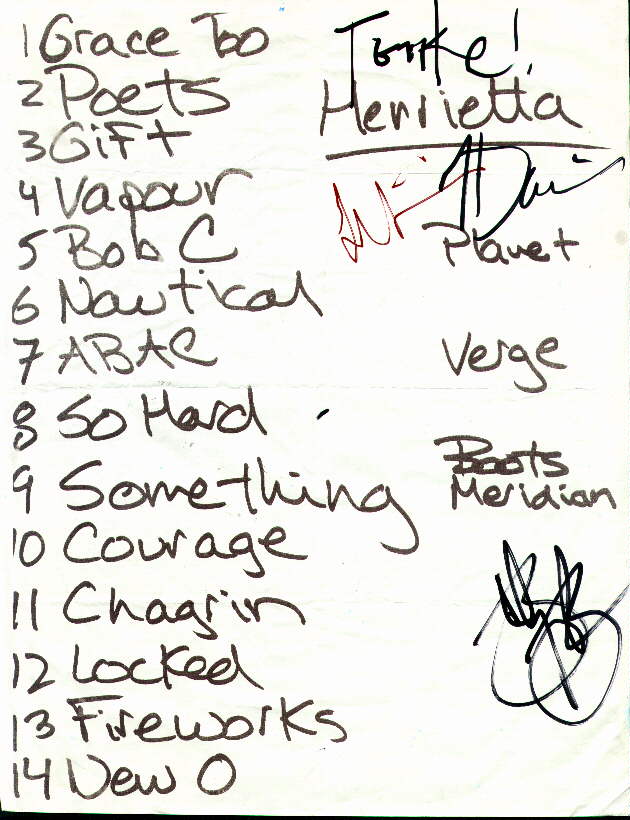 1 Grace Too
2 Poets
3 Gift
4 Vapour
5 Bob C
6 Nautical
7 ABAC
8 So Hard
9 Something
10 Courage
11 Chagrin
12 Locked
13 Fireworks
14 New O
Henrietta
Planet
Verge
Boots
Meridian